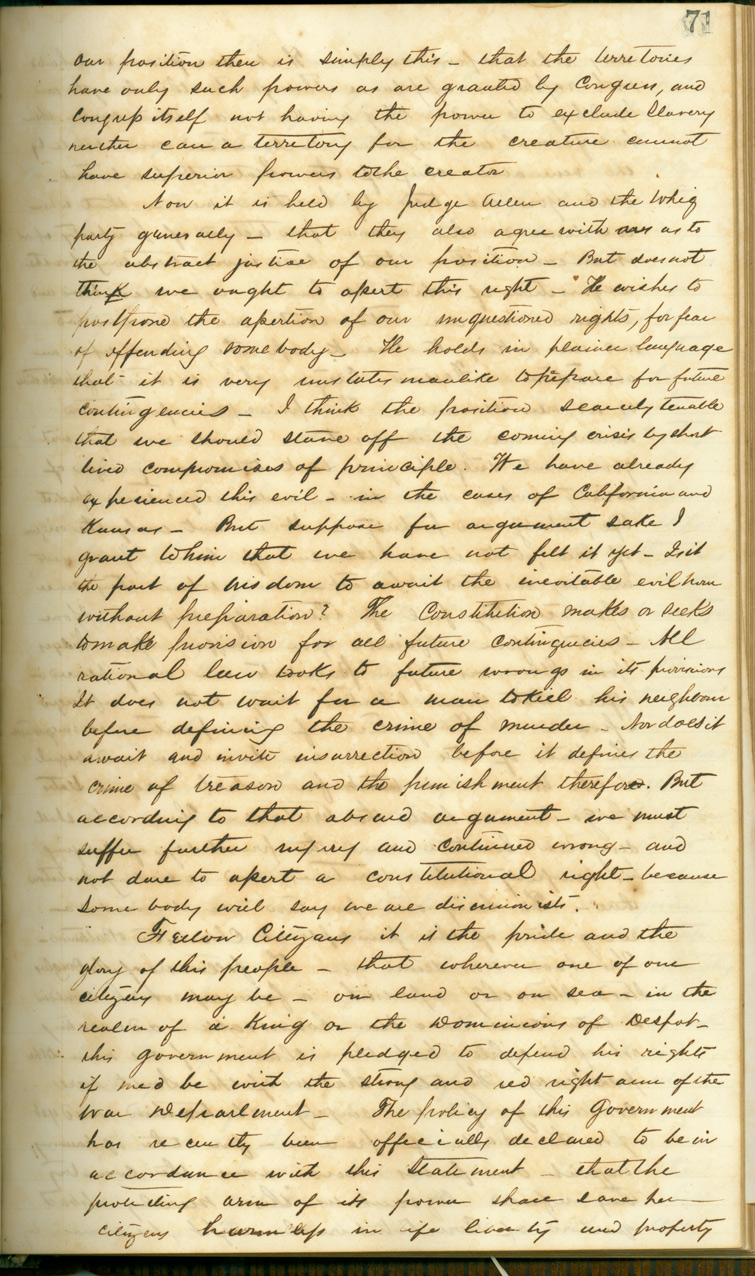 71
our position then is simply this – that the territories
have only such powers as are granted by Congress, and
Congress itself not having the power to exclude Slavery
neither can a territory for the creature cannot
have superior powers to the creator
Now it is held by Judge Allen and the Whig
party generally – that they also agree with us as to
the abstract justice of our position – But does not
think we ought to assert this right – "He wishes to
postpone the assertion of our unquestioned rights, for fear
of offending somebody – He holds in plainer language
that it is very unstatesmanlike to prepare for future
contingencies – I think the position scarcely tenable
that we should stave off the coming crisis by short
lived compromises of principle. We have already
experienced this evil – in the cases of California and
Kansas – But suppose for argument sake I
grant to him that we have not felt it yet – Is it
the part of wisdom to await the inevitable evil hour
without preparation? The Constitution makes or seeks
to make provision for all future contingencies – All
rational law looks to future wrongs in its provisions
It does not wait for a man to kill his neighbour
before defining the crime of murder – Nor does it
await and invite insurrection before it defines the
crime of treason and the punishment therefor. But
according to that absurd argument – we must
suffer further injury and continued wrong – and
not dare to assert a constitutional right – because
some body will say we are disunionists.
Fellow Citizens it is the pride and the
glory of this people – that wherever one of our
citizens may be – on land or on sea – in the
realm of a King or the Dominions of Despot –
this government is pledged to defend his rights
if need be with the strong and red right arm of the
War Department – The policy of this Government
has recently been officially declared to be in
accordance with this Statement – that the
protecting arm of its power shall save her
citizens harmless in life liberty and property